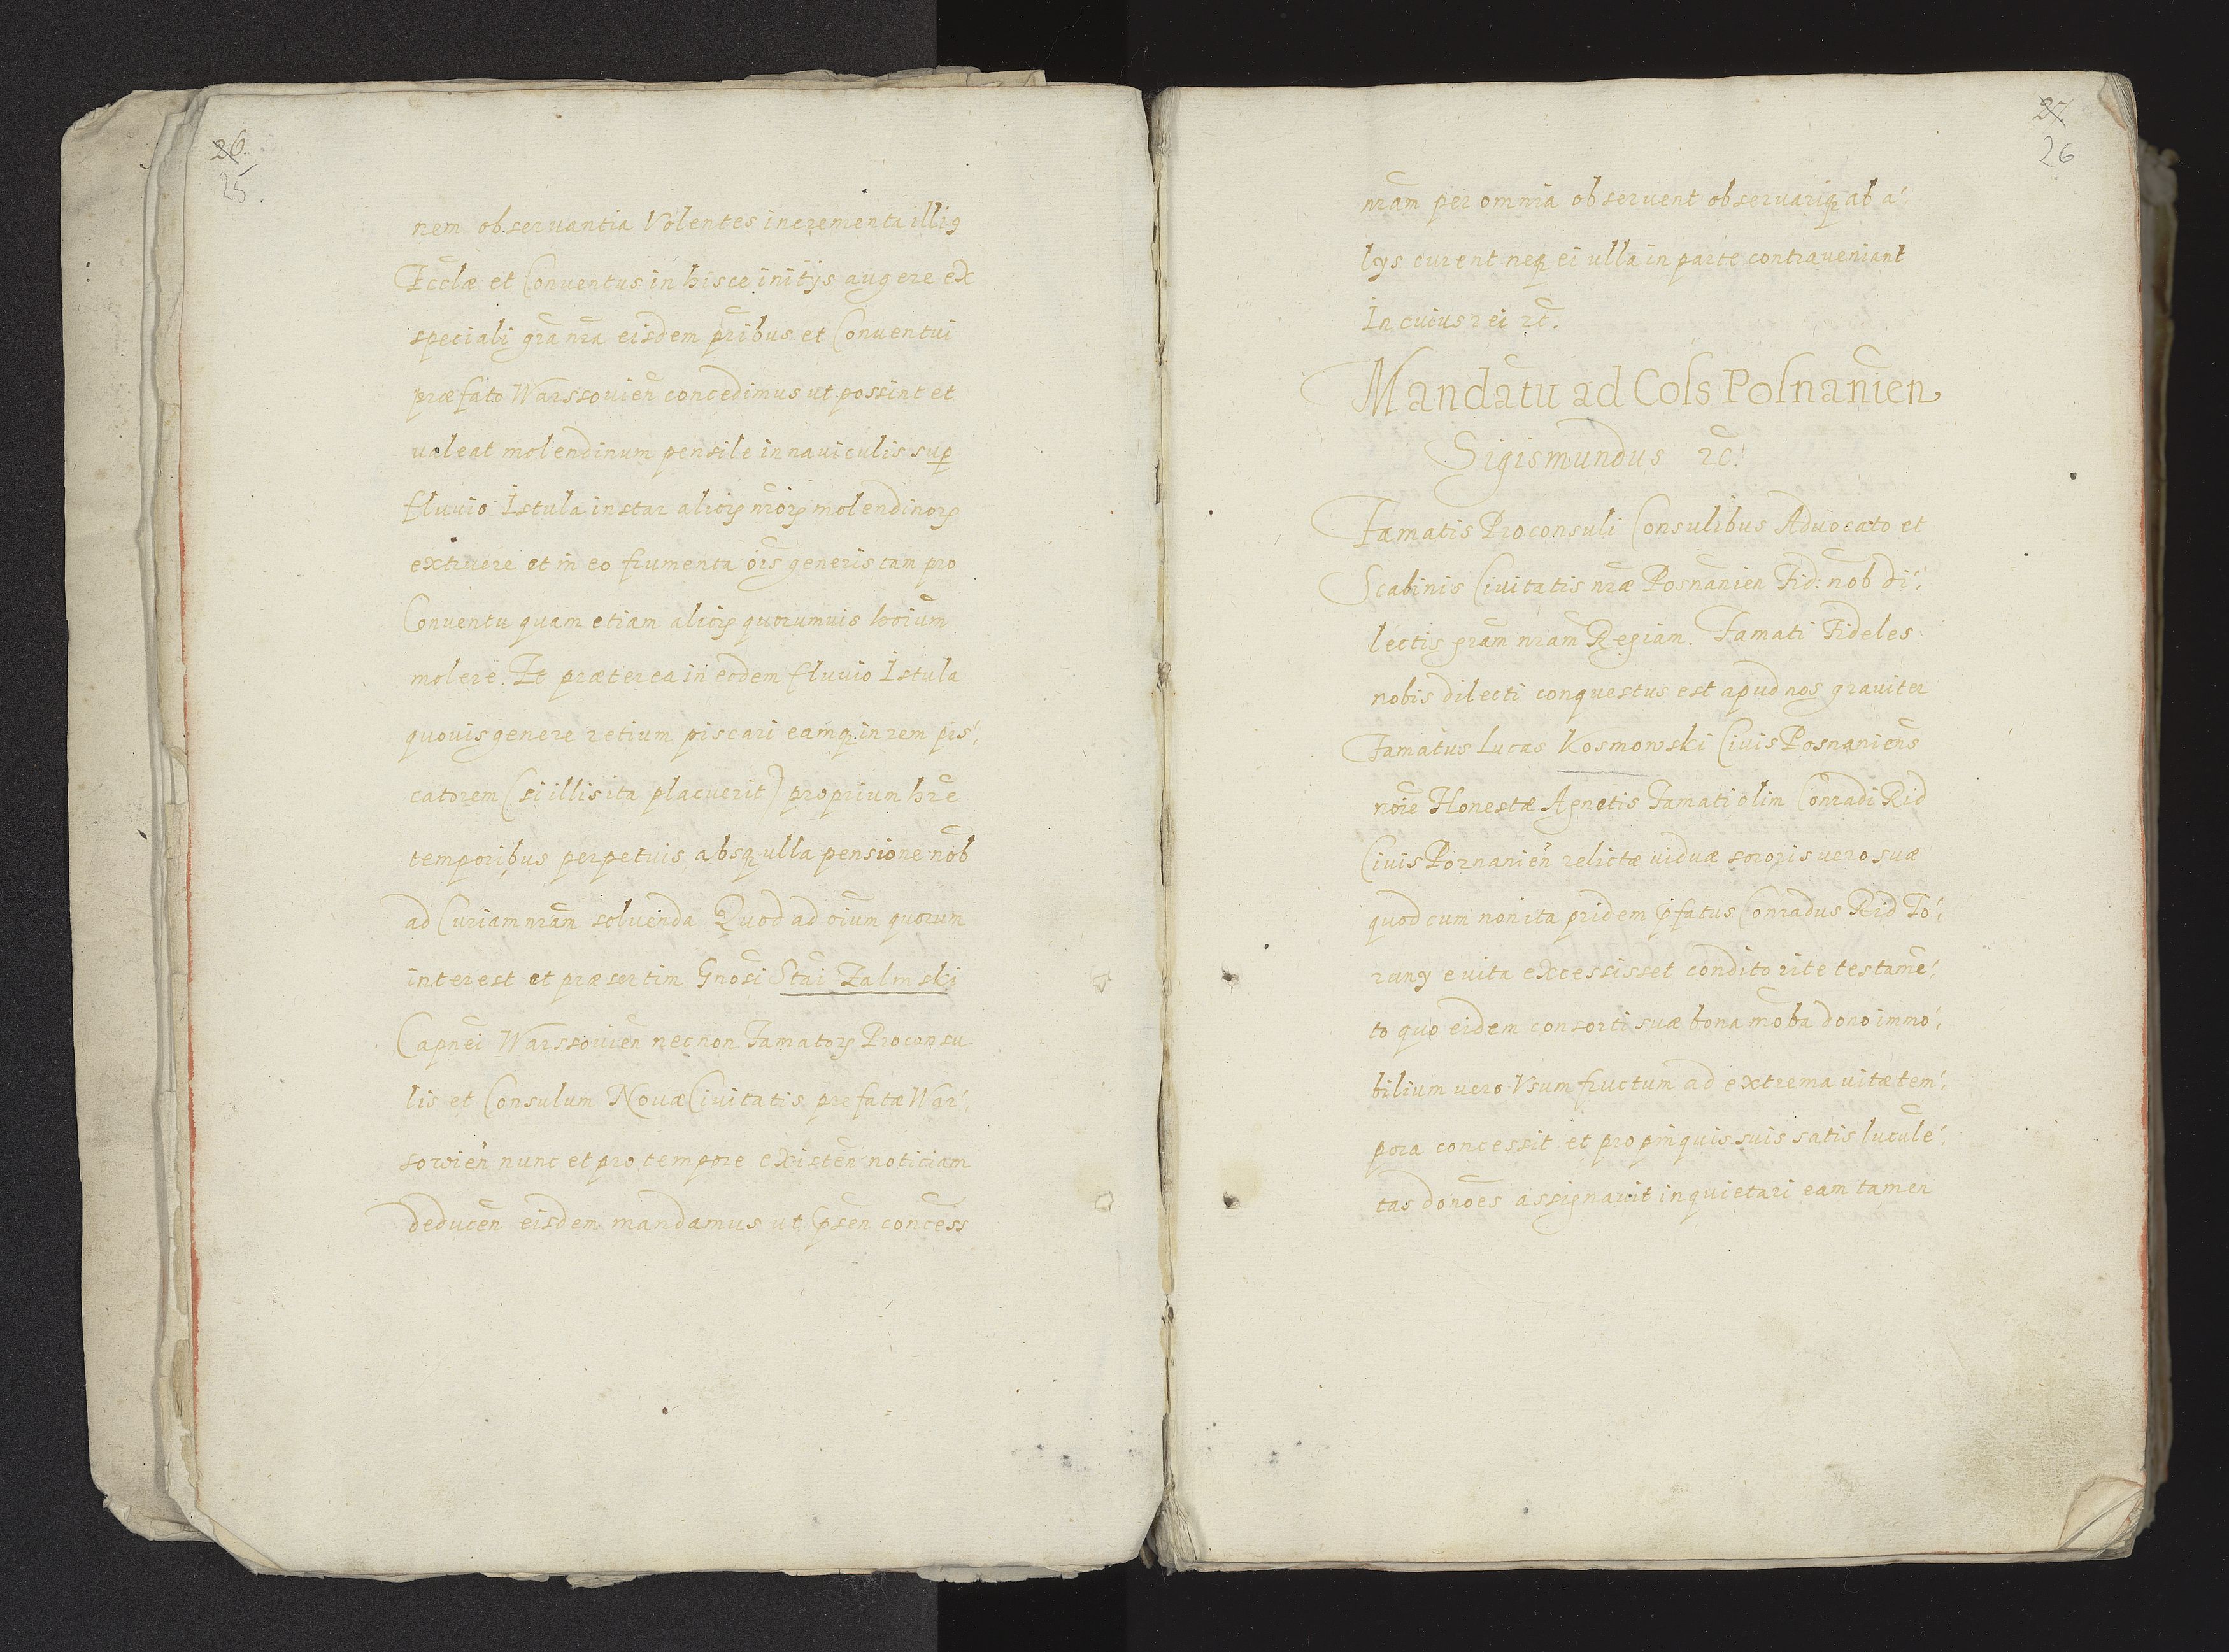 26.
25.
nem observantia Volentes incrementa illig
Ecclæ et Conventus in hisce initÿs augere ex
speciali gr̃a nr̃a eisdem pr̃ibus et Conventui
præfato Warssovien̄ concedimus ut possint et
valeat molendinum pensile in naviculis sup̱
fluvio Istula instar alioꝝ nr̃oꝝ molendinoꝝ
extruere et in eo frumenta oĩs generis tam pro
Conventu quam etiam alioꝝ quorumuis hoĩum
molere. Et præterea in eodem fluvio Istula
quovis genere retium piscari eamq; in rem pis⸗
catorem (si illis ita placuerit) proprium hr̃e
temporibus perpetuis absq; ulla pensione nob̃
ad Curiam nr̃am solvenda Quod ad oĩum quorum
interest et præsertim Gnosi Stai Zalinski
Capnei Warssovien̄ necnon Famatoꝝ Proconsu
lis et Consulum Novæ Civitatis prefatæ War⸗
sovien̄ nunc et pro tempore existen̄ noticiam
deducen̄ eisdem mandamus ut p̃sen concess
27.
26
nr̃am per omnia observent observariq; ab a⸗
lÿs curent neq; ei ulla in parte contraveniant
In cuius rei ꝛc̃.
Mandatu ad Cols Posnanien
Sigismundus ꝛc̃.
Famatis Proconsuli Consulibus Advocato et
Scabinis Civitatis nr̃æ Posnanien Fid: nob di⸗
lectis gr̃am nr̃am Regiam. Famati Fideles
nobis dilecti conquestus est apud nos graviter
Famatus Lucas Kosmowski Civis Posnaniens
noĩe Honestæ Agnetis Famati olim Conradi Rid
Civis Poznanien̄ relictæ viduæ sororis vero suæ
quod cum non ita pridem p̃fatus Conradus Rid To⸗
runÿ e vita excessisset condito rite testamẽ⸗
to quo eidem consorti suæ bona mob̃a dono immo⸗
bilium vero Vsumfructum ad extrema vitæ tem⸗
pora concessit et propinquis suis satis luculẽ⸗
tas donões assignavit inquietari eam tamen